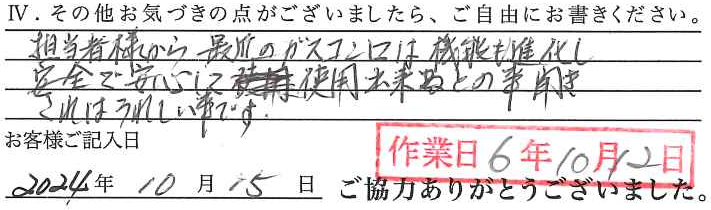 Ⅳ. その他お気づきの点がございましたら、ご自由にお書きください。
担当者様から最近のガスコンロは機能も進化し
安全で安心して使用出来るとの事聞き
これはうれしい事です。
お客様ご記入日
作業日 6年10月12日
2024年 10月 15日 ご協力ありがとうございました。